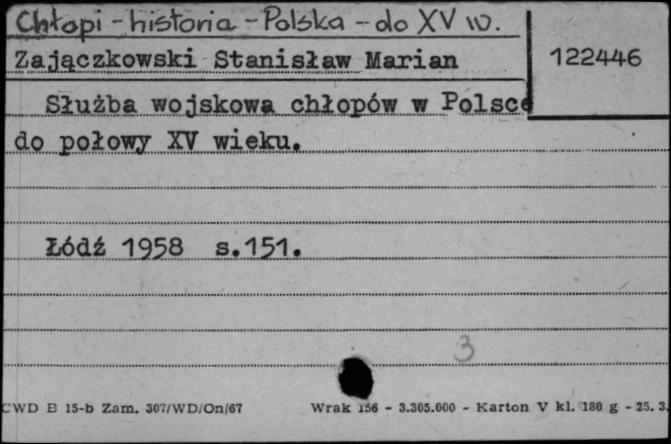 Chłopi - historia - Polska - do XV w.
Zajączkowski Stanisław Marian
122446
Służba wojskowa chłopów w Polsce
do połowy XV wieku.
Łódź 1958 s.151.
3
CWD B 15-b Zam. 307/WD/On/67 Wrak 156 - 3.305.000 - Karton V kl. 180 g - 25. 3.